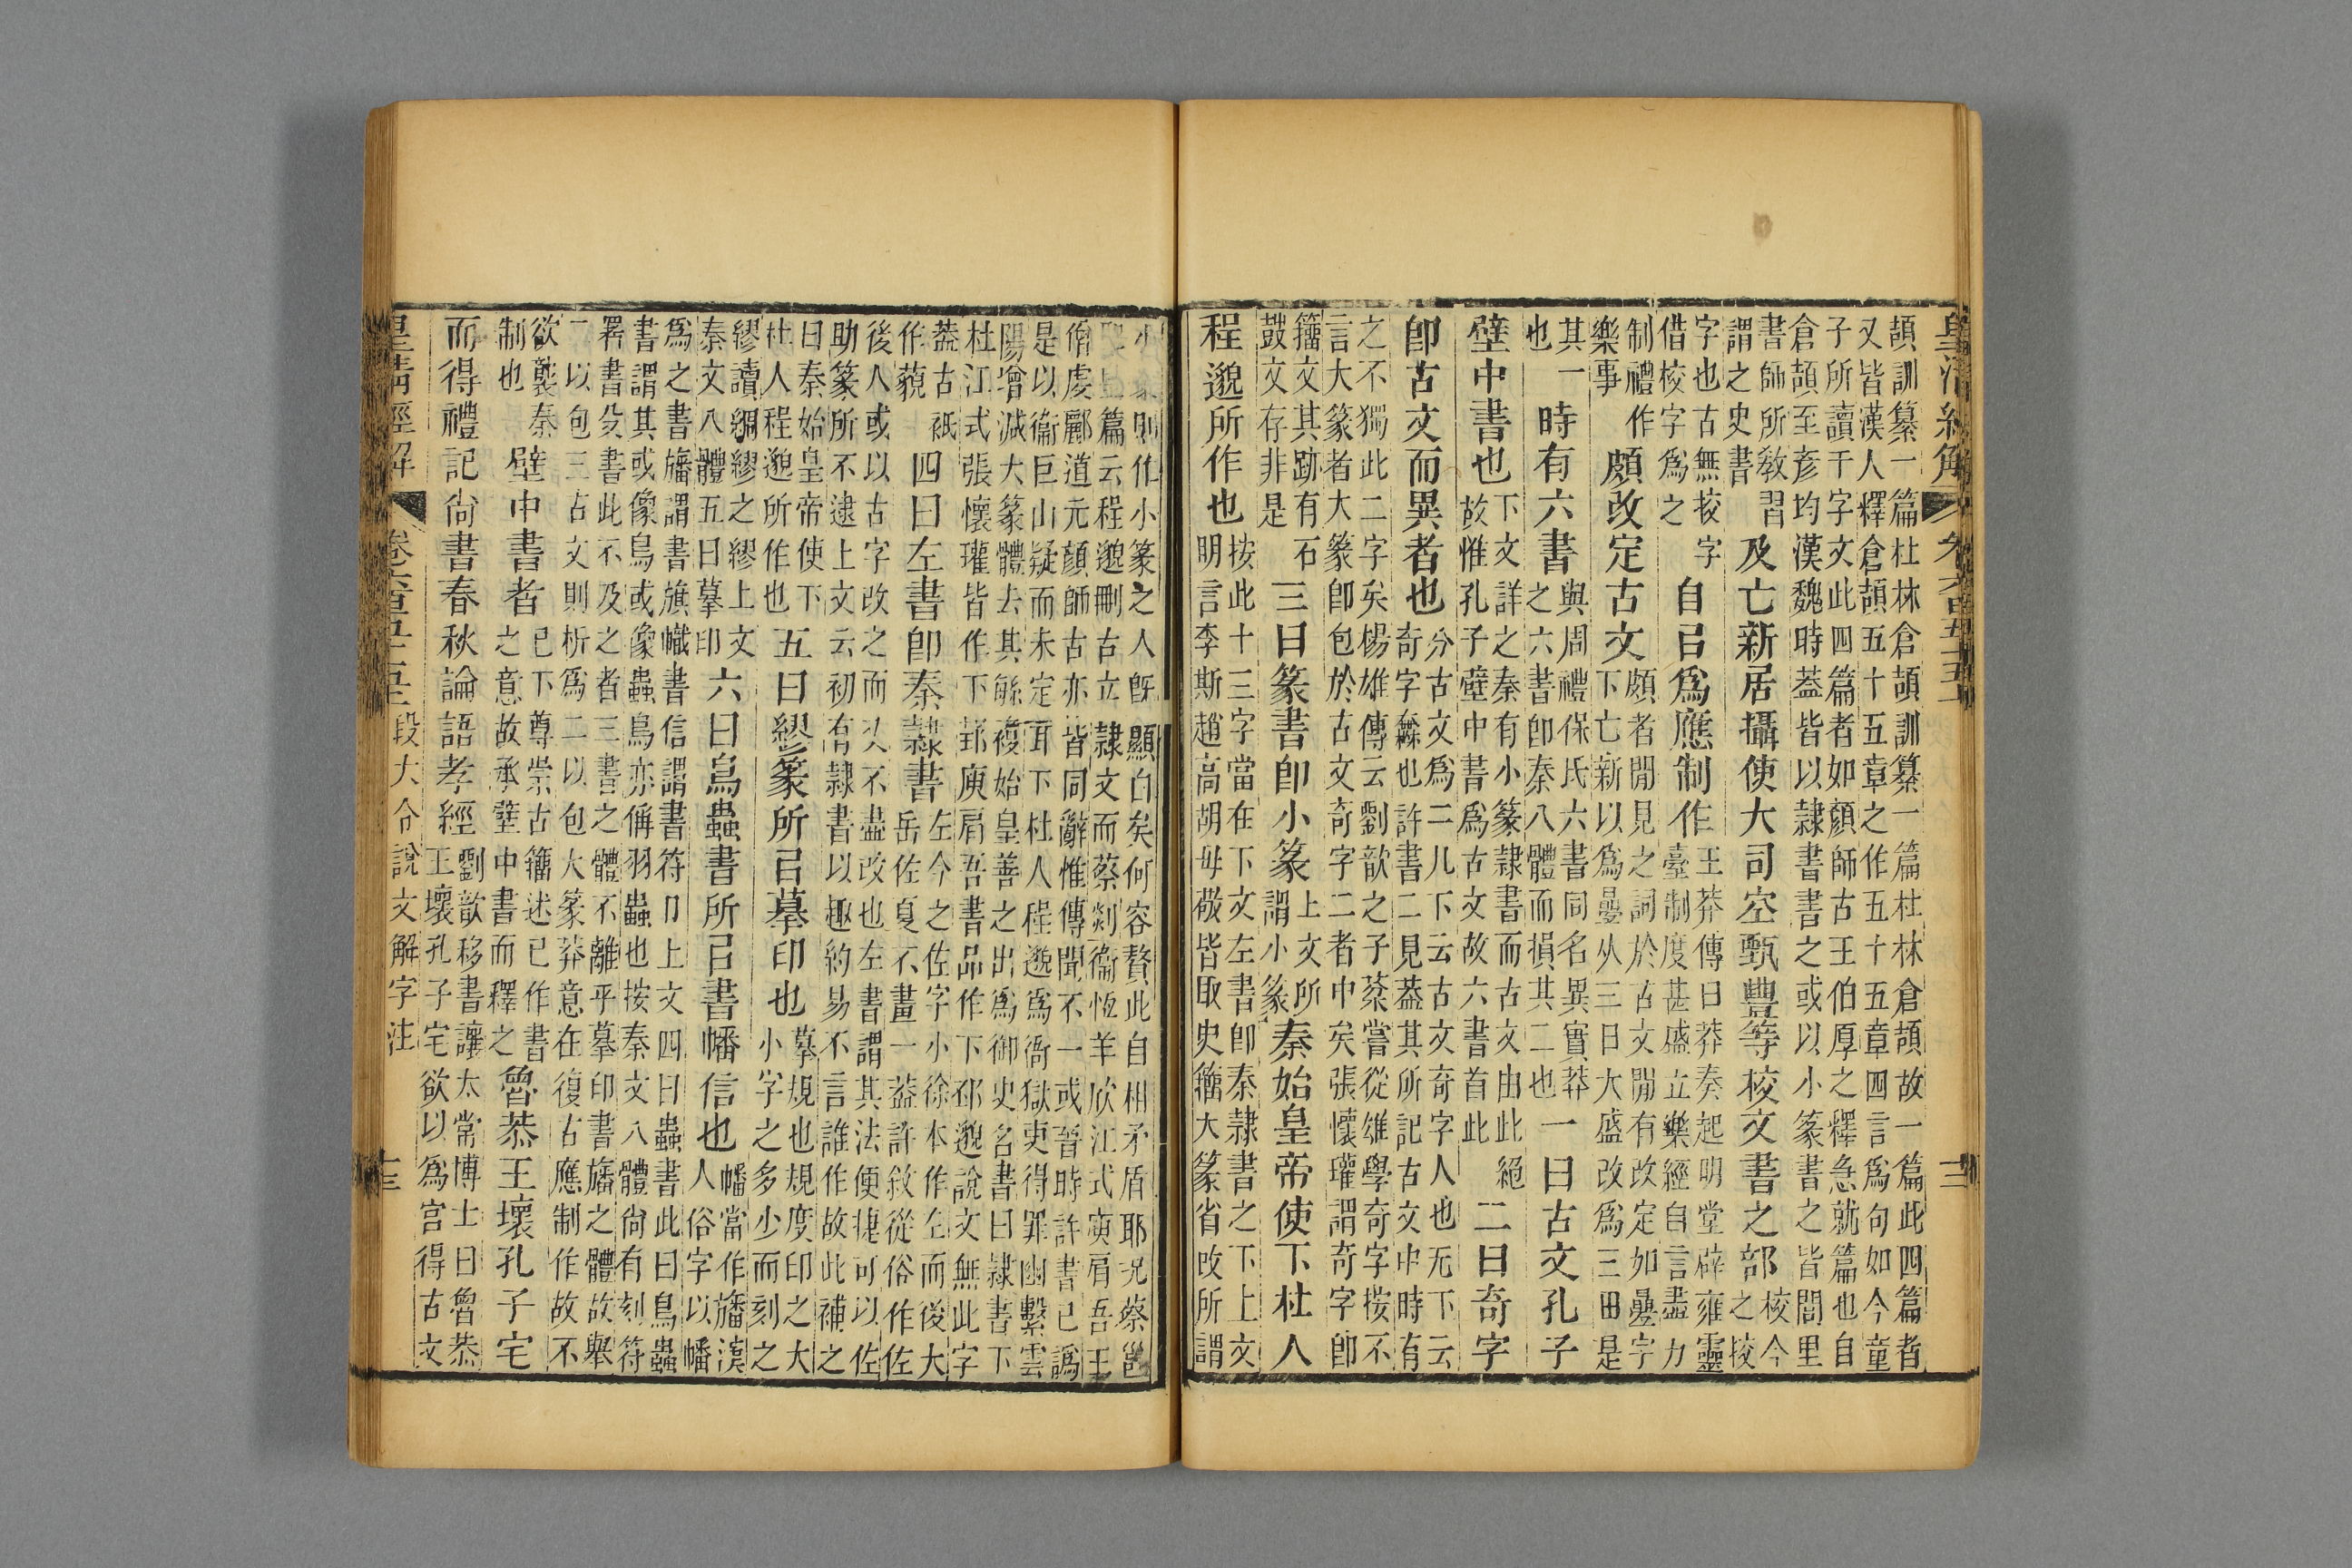 皇清經解 卷六百五十五 三
頡訓纂一篇杜林倉頡訓纂一篇杜林倉頡故一篇此四篇者
又皆漢人釋倉頡五十五章之作五十五章四言爲句如今童
子所讀千字文此四篇者如顏師古王伯厚之釋急就篇也自
倉頡至彥均漢魏時蓋皆以隸書書之或以小篆書之皆閭里
書師所敎習
謂之史書
及亡新居攝使大司空甄豐等校文書之部
校今
之挍
字也古無挍字
借校字爲之
自㠯爲應制作
王莽傳曰莽奏起明堂辟雍靈
臺制度甚盛立樂經自言盡力
制禮作
樂事
頗改定古文
頗者閒見之詞於古文閒有改定如疊字
下亡新以爲疊从三日大盛改爲三田是
其一
也
時有六書
與周禮保氏六書同名異實莽
之六書卽秦八體而損其二也
一曰古文孔子
壁中書也
下文詳之秦有小篆隸書而古文由此絕
故惟孔子壁中書爲古文故六書首此
二曰奇字
卽古文而異者也
分古文爲二儿下云古文奇字人也无下云
奇字無也許書二見蓋其所記古文中時有
之不獨此二字矣楊雄傳云劉歆之子棻嘗從雄學奇字按不
言大篆者大篆卽包於古文奇字二者中矣張懷瓘謂奇字卽
籀文其跡有石
鼓文存非是
三曰篆書卽小篆
上文所
謂小篆
秦始皇帝使下杜人
程邈所作也
按此十三字當在下文左書卽秦隸書之下上文
明言李斯趙高胡毋敬皆取史籀大篆省改所謂
小篆則作小篆之人旣顯白矣何容贅此自相矛盾耶況蔡邕
篇云程邈刪古立隸文而蔡剡衞恆羊欣江式庾肩吾王
僧虔酈道元顏師古亦皆同辭惟傳聞不一或晉時許書已譌
是以衞巨山疑而未定耳下杜人程邈爲衙獄吏得罪幽繫雲
陽增減大篆體去其緐複始皇善之出爲御史名書曰隸書下
杜江式張懷瓘皆作下邽庾肩吾書品作下邳邈說文無此字
蓋古衹
作藐
四曰左書卽秦隸書
左今之佐字小徐本作左而後大
岳佐夏不畫一蓋許敘從俗作佐
後人或以古字改之而久不盡改也左書謂其法便捷可以佐
助篆所不逮上文云初有隸書以趣約易不言誰作故此補之
曰秦始皇帝使下
杜人程邈所作也
五曰繆篆所㠯摹印也
摹規也規度印之大
小字之多少而刻之
繆讀綢繆之繆上文
秦文八體五曰摹印
六曰鳥蟲書所㠯書幡信也
幡當作旛漢
人俗字以幡
爲之書旛謂書旗幟書信謂書符卩上文四曰蟲書此曰鳥蟲
書謂其或像鳥或像蟲鳥亦偁羽蟲也按秦文八體尙有刻符
署書殳書此不及之者三書之體不離乎摹印書旛之體故舉
二以包三古文則析爲二以包大篆莽意在復古應制作故不
欲襲秦
制也
壁中書者
已下尊崇古籀述已作書
之意故承壁中書而釋之
魯恭王壞孔子宅
而得禮記尙書春秋論語孝經
劉歆移書讓太常博士曰魯恭
王壞孔子宅欲以爲宫得古文
皇淸經解 卷六百五十五 段大令說文解字注 十三